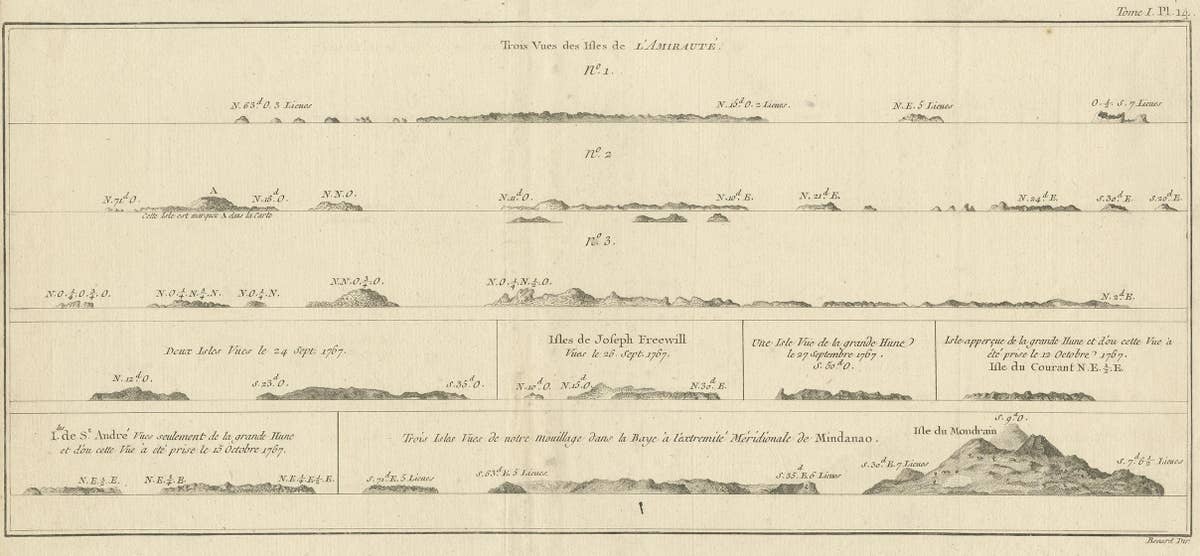 Tome I. Pl. 14.
Trois Vues des Isles de L'AMIRAUTÉ.
N.º 1.
N. 63.d O. 3 Lieues
N. 15.d O. 2 Lieues.
N. E. 5 Lieues
O. ¼ S. 7 Lieues
N.º 2
N. 71.d O.
A
N. 18.d O.
N. N. O.
N. 11.d O.
N. 10.d E.
N. 21.d E.
N. 24.d E.
S. 30.d E.
S. 20.d E.
Cette Isle est marquée A dans la Carte
N.º 3.
N. O. ¼ O. ¾ O.
N. O. ¼ N. ¾ N.
N. O. ¼ N.
N. N. O. ¾ O.
N. O. ¼ N. ½ O.
N. 2.d E.
Deux Isles Vues le 24 Sept. 1767.
N. 12.d O.
S. 23.d O.
S. 35.d O.
Isles de Joseph Freewill
Vues le 26 Sept. 1767.
N. 10.d O.
N. 15.d O.
N. 30.d E.
Une Isle Vue de la grande Hune
le 27 Septembre 1767.
S. 50.d O.
Isle apperçue de la grande Hune et d'où cette Vue à
été prise le 12 Octobre 1767.
Isle du Courant N. E. ½ E.
I.les de S.t André Vues seulement de la grande Hune
et d'où cette Vue à été prise le 15 Octobre 1767.
N. E. ½ E.
N. E. ¼ E.
N. E. ¼ E ½ E.
Trois Isles Vues de notre mouillage dans la Baye à l'extremité Méridionale de Mindanao.
S. 71.d E. 5 Lieues
S. 63.d E. 5 Lieues.
S. 35.d E. 6 Lieues
Isle du Mondrain
S. 9.d O.
S. 30.d E. 7 Lieues
S. 7.d 6½ Lieues
Benard Dir.